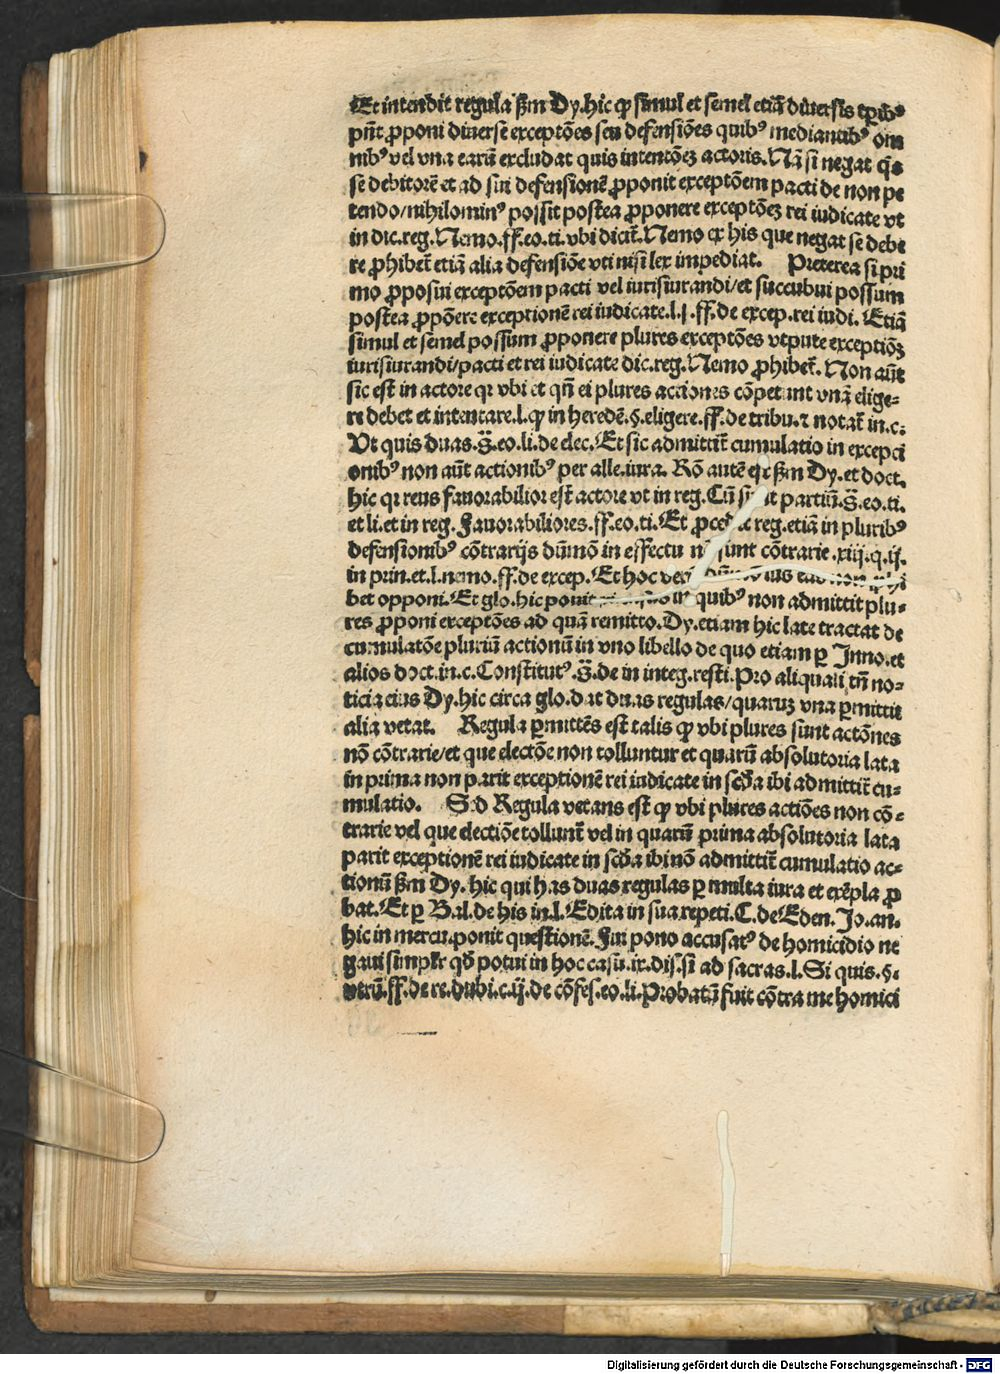 Et intendit regula ẜm Dy. hic ꝙ simul et semel etiā diuersis tp̄ibꝰ
pn̄t ꝓponi diuerse exceptōes seu defensiōes quibꝰ mediantibꝰ om
nibꝰ vel vna earū excludat quis intentōeꝫ actoris. Nā si negat q̄s
se debitorē et ad sui defensionē ꝓponit exceptōem pacti de non pe
tendo/nihilominꝰ possit postea ꝓponere exceptōeꝫ rei iudicate vt
in dic. reg. Nemo. ff. eo. ti. vbi dicit̄. Nemo ex his que negat se debe
re ꝓhibet̄ etiā alia defensiōe vti nisi lex impediat. Preterea si pri
mo ꝓposui exceptōem pacti vel iurisiurandi/et succubui possum
postea ꝓpōere exceptionē rei iudicate. l. j. ff. de excep. rei iudi. Etiā
simul et semel possum ꝓponere plures exceptōes vtpute exceptiōꝫ
iurisiurandi/pacti et rei iudicate dic. reg. Nemo ꝓhibet̄. Non aūt
sic est in actore qꝛ vbi et qn̄ ei plures acciones cōpetunt vnā elige⸗
re debet et intentare. l. ꝙ in heredē. §. eligere. ff. de tribu. ⁊ notat̄ in. c.
Vt quis duas. S̄. eo. li. de elec. Et sic admittit̄ cumulatio in excepci
onibꝰ non aūt actionibꝰ per alle. iura. Rō autē est ẜm Dy. et doct.
hic qꝛ reus fauorabilior est actore vt in reg. Cū sunt partiū. S̄. eo. ti.
et li. et in reg. Fauorabiliores. ff. eo. ti. Et ꝓcedit reg. etiā in pluribꝰ
defensionibꝰ cōtrarijs dūmō in effectu nō sint cōtrarie. xiij. q. ij.
in prin. et. l. nemo. ff. de excep. Et hoc
bet opponi. Et glo. hic ponit in quibꝰ non admittit plu⸗
res ꝓponi exceptōes ad quā remitto. Dy. etiam hic late tractat de
cumulatōe pluriū actionū in vno libello de quo etiam ꝑ Inno. et
alios doct. in. c. Constitutꝰ. S̄. de in integ. resti. Pro aliquali tn̄ no⸗
ticia eius Dy. hic circa glo. dat duas regulas/quaruꝫ vna ꝑmittit
alia vetat. Regula ꝑmittēs est talis ꝙ vbi plures sunt actōnes
nō cōtrarie/et que electōe non tolluntur et quarū absolutoria lata
in prima non parit exceptionē rei iudicate in scd̄a ibi admittit̄ cu⸗
mulatio. Sꝫ Regula vetans est ꝙ vbi plures actiōes non cō⸗
trarie vel que electiōe tollunt̄ vel in quarū prima absolutoria lata
parit exceptionē rei iudicate in scd̄a ibi nō admittit̄ cumulatio ac⸗
tionū ẜm Dy. hic qui has duas regulas ꝑ multa iura et exēpla ꝓ
bat. Et ꝑ Bal. de his in. l. Edita in sua repeti. C. de Eden. Jo. an.
hic in mercu. ponit questionē. Fui pono accusatꝰ de homicidio ne
gaui simplr̄ qd̄ potui in hoc casu. ix. dis. si ad sacras. l. Si quis. §.
vtrū. ff. de re. dubi. c. ij. de cōfes. eo. li. Probatū fuit cōtra me homici
Digitalisierung gefördert durch die Deutsche Forschungsgemeinschaft - DFG